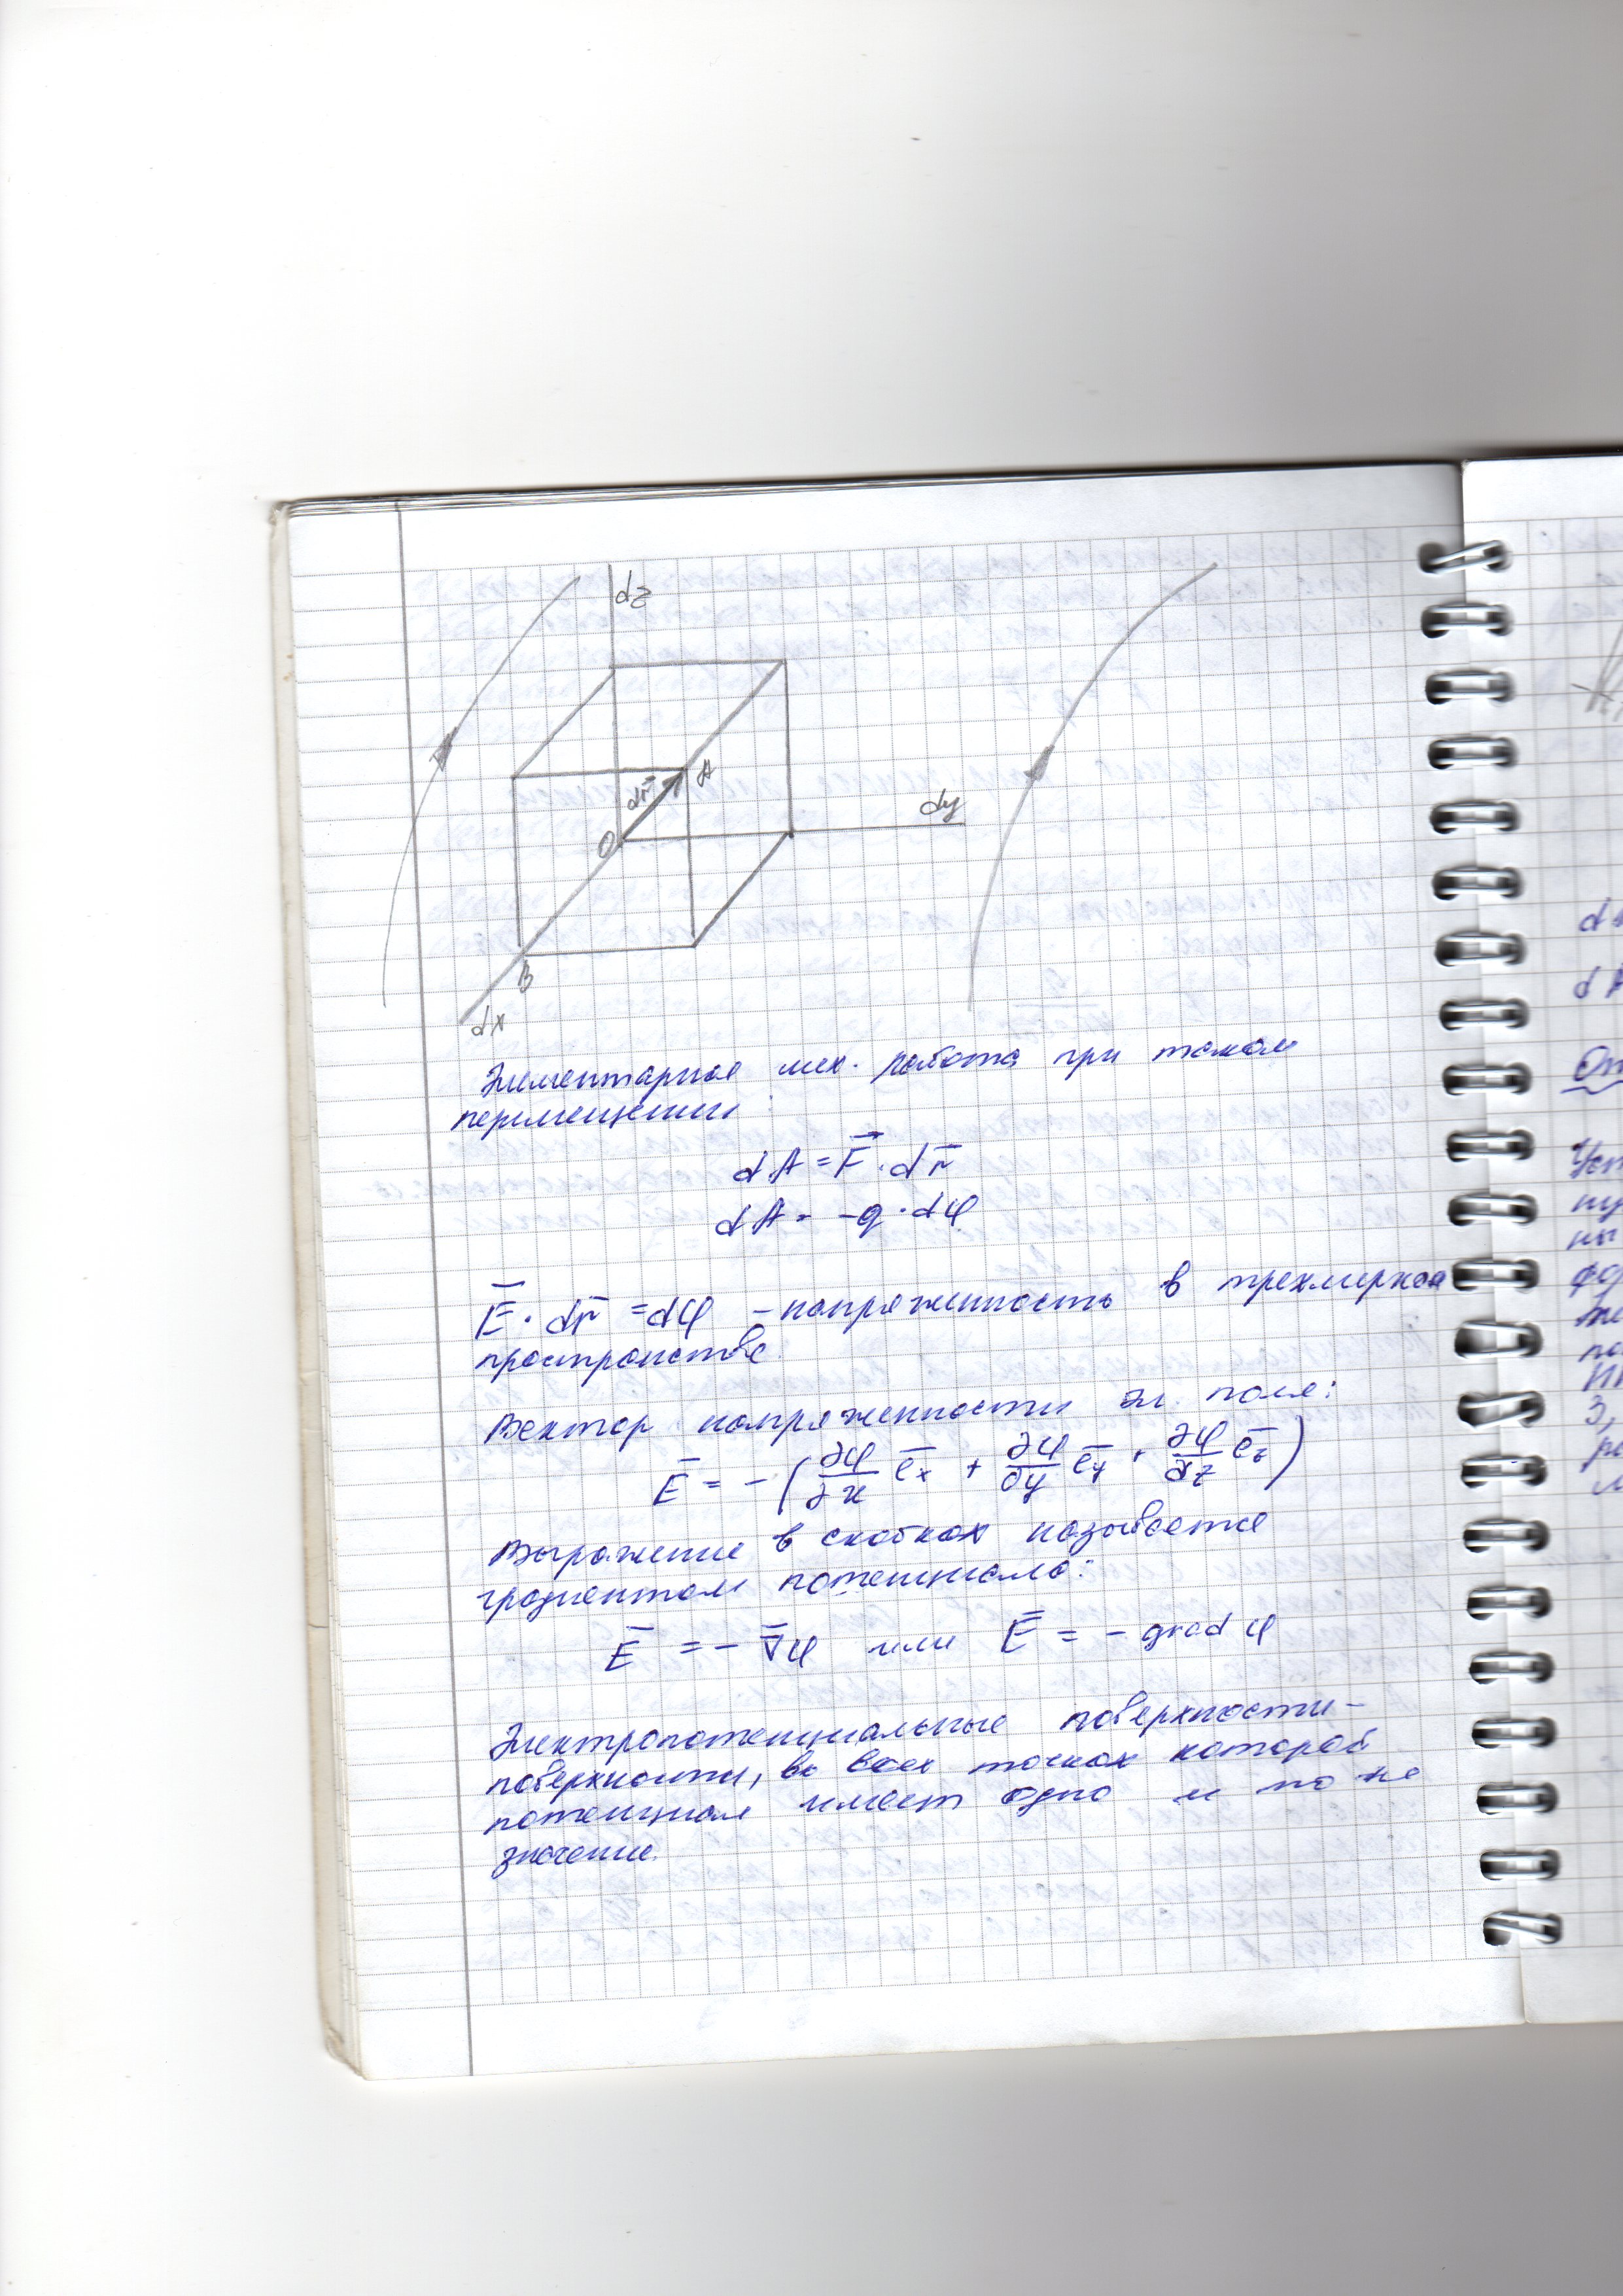 dz
dr̄
A
O
dy
B
dx
Элементарная мех. работа при таком
перемещении:
dA = F⃗ · dr̄
dA = -q · dφ
Ē · dr̄ = dφ - напряженность в трехмерном
пространстве
Вектор напряженности эл. поля:
Ē = - (∂φ/∂x ēx + ∂φ/∂y ēy + ∂φ/∂z ēz)
Выражение в скобках называется
градиентом потенциала:
Ē = - ∇̄φ или Ē = - grad φ
Электропотенциальные поверхности -
поверхности, во всех точках которой
потенциал имеет одно и то же
значение.